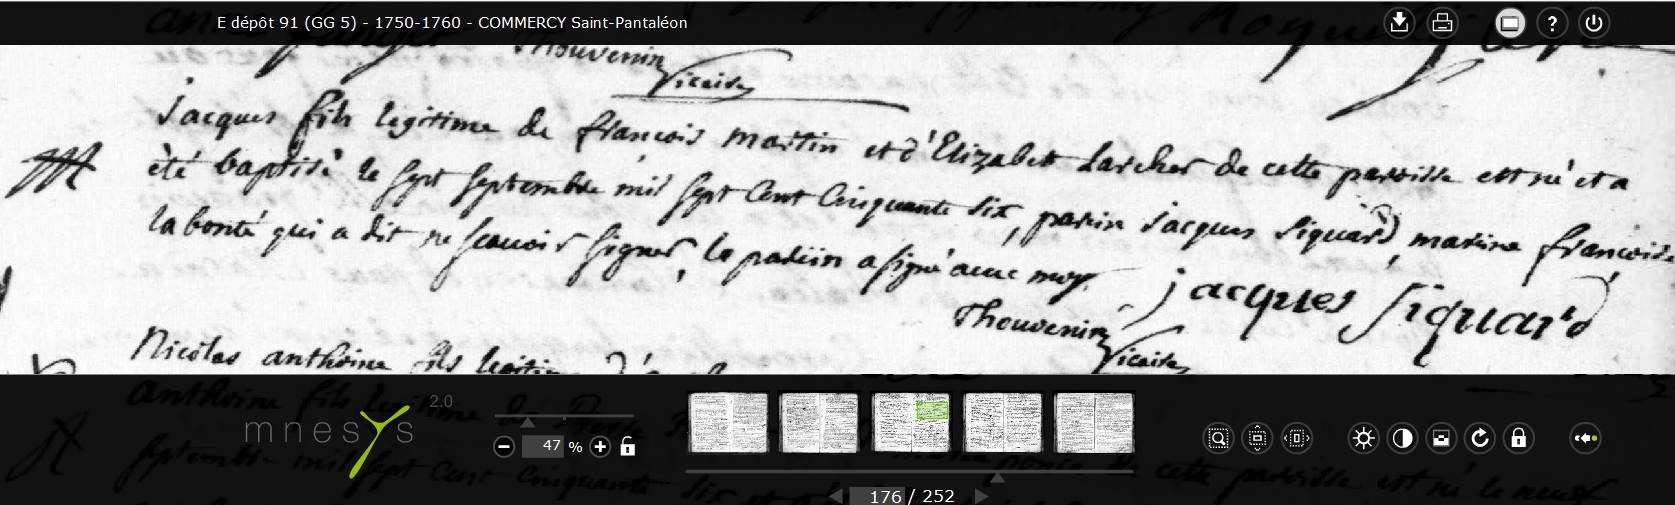 E dépôt 91 (GG 5) - 1750-1760 - COMMERCY Saint-Pantaléon
Thouvenin
Vicaire
jacques fils legitime de francois martin et d'Elizabet Larcher de cette paroisse est né et a
été baptisé le sept septembre mil sept Cent Cinquante six, parein jacques Siquard, mareine francoise
la bonté qui a dit ne scavoir signer, le pareiin a signé avec moy.
jacques siquard
Thouvenin
Vicaire
Nicolas anthoine fils legitime
anthoine fils legitime de
septembre mil sept Cent Cinquante six
de cette paroisse est né le neuf
mnesys
2.0
47 %
176 / 252